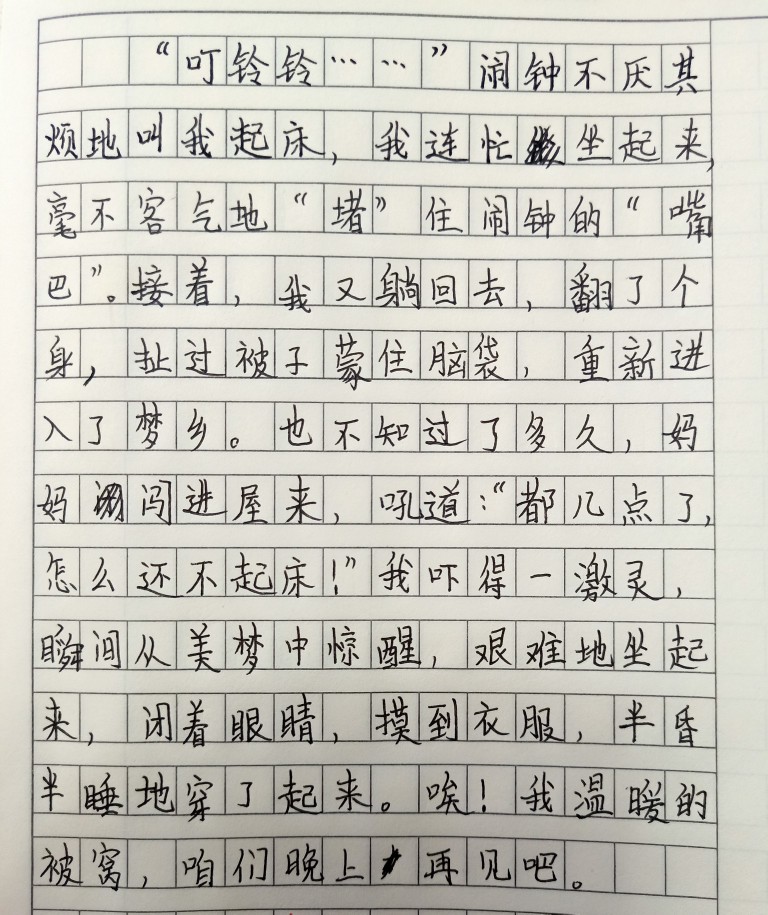 “叮铃铃……”闹钟不厌其
烦地叫我起床，我连忙坐起来，
毫不客气地“堵”住闹钟的“嘴
巴”。接着，我又躺回去，翻了个
身，扯过被子蒙住脑袋，重新进
入了梦乡。也不知过了多久，妈
妈闯进屋来，吼道：“都几点了，
怎么还不起床！”我吓得一激灵，
瞬间从美梦中惊醒，艰难地坐起
来，闭着眼睛，摸到衣服，半昏
半睡地穿了起来。唉！我温暖的
被窝，咱们晚上再见吧。